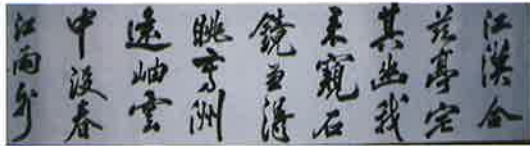 江漢合
茲亭宅
其幽我
來窺石
鏡兼得
眺芳洲
遠岫雲
中沒春
江雨外